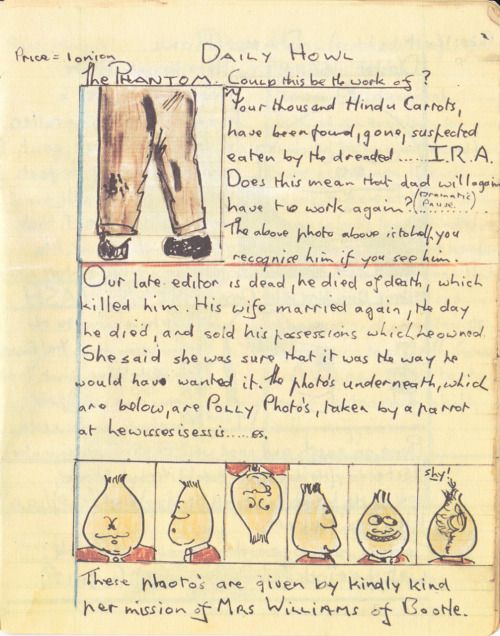 Price = 1 onion
DAILY HOWL
The PHANTOM. Could this be the work of ?
Four thousand Hindu Carrots,
have been found, gone, suspected
eaten by the dreaded ...... I.R.A.
Does this mean that dad will again
have to work again? (Dramatic Pause..........)
The above photo above is to help you
recognise him if you see him.
Our late editor is dead, he died of death, which
killed him. His wife married again, the day
he died, and sold his possessions which he owned
She said she was sure that it was the way he
would have wanted it. The photo's underneath, which
are below, are POLLY PHOTO's, taken by a parrot
at Lewissesisessis.....es.
shy!
These photo's are given by kindly kind
permission of MRS WILLIAMS of Bootle.